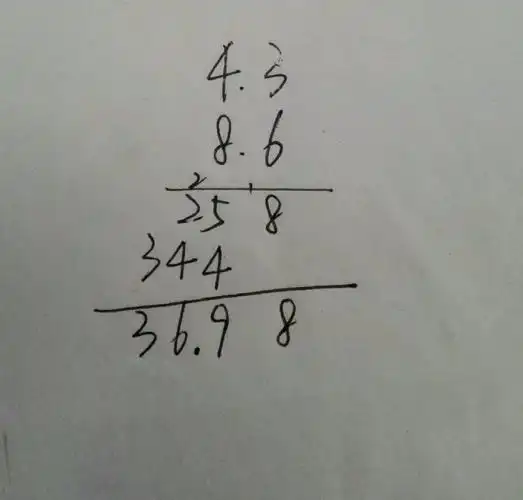 4.3
8.6
258
344
36.98